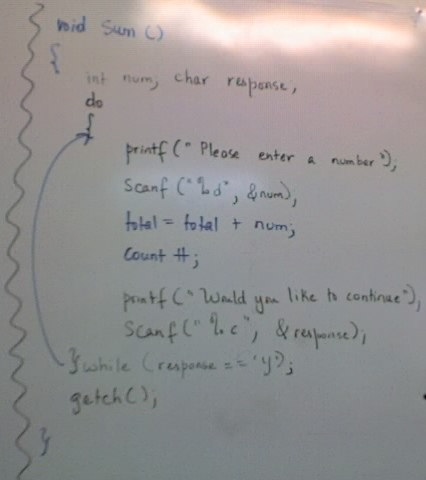 void Sum ()
{
int num; char response;
do
{
printf (" Please enter a number");
Scanf ("%d", &num);
total = total + num;
Count ++;
printf ("Would you like to continue");
Scanf ("%c", &response);
} while (response == 'y');
getch();
}